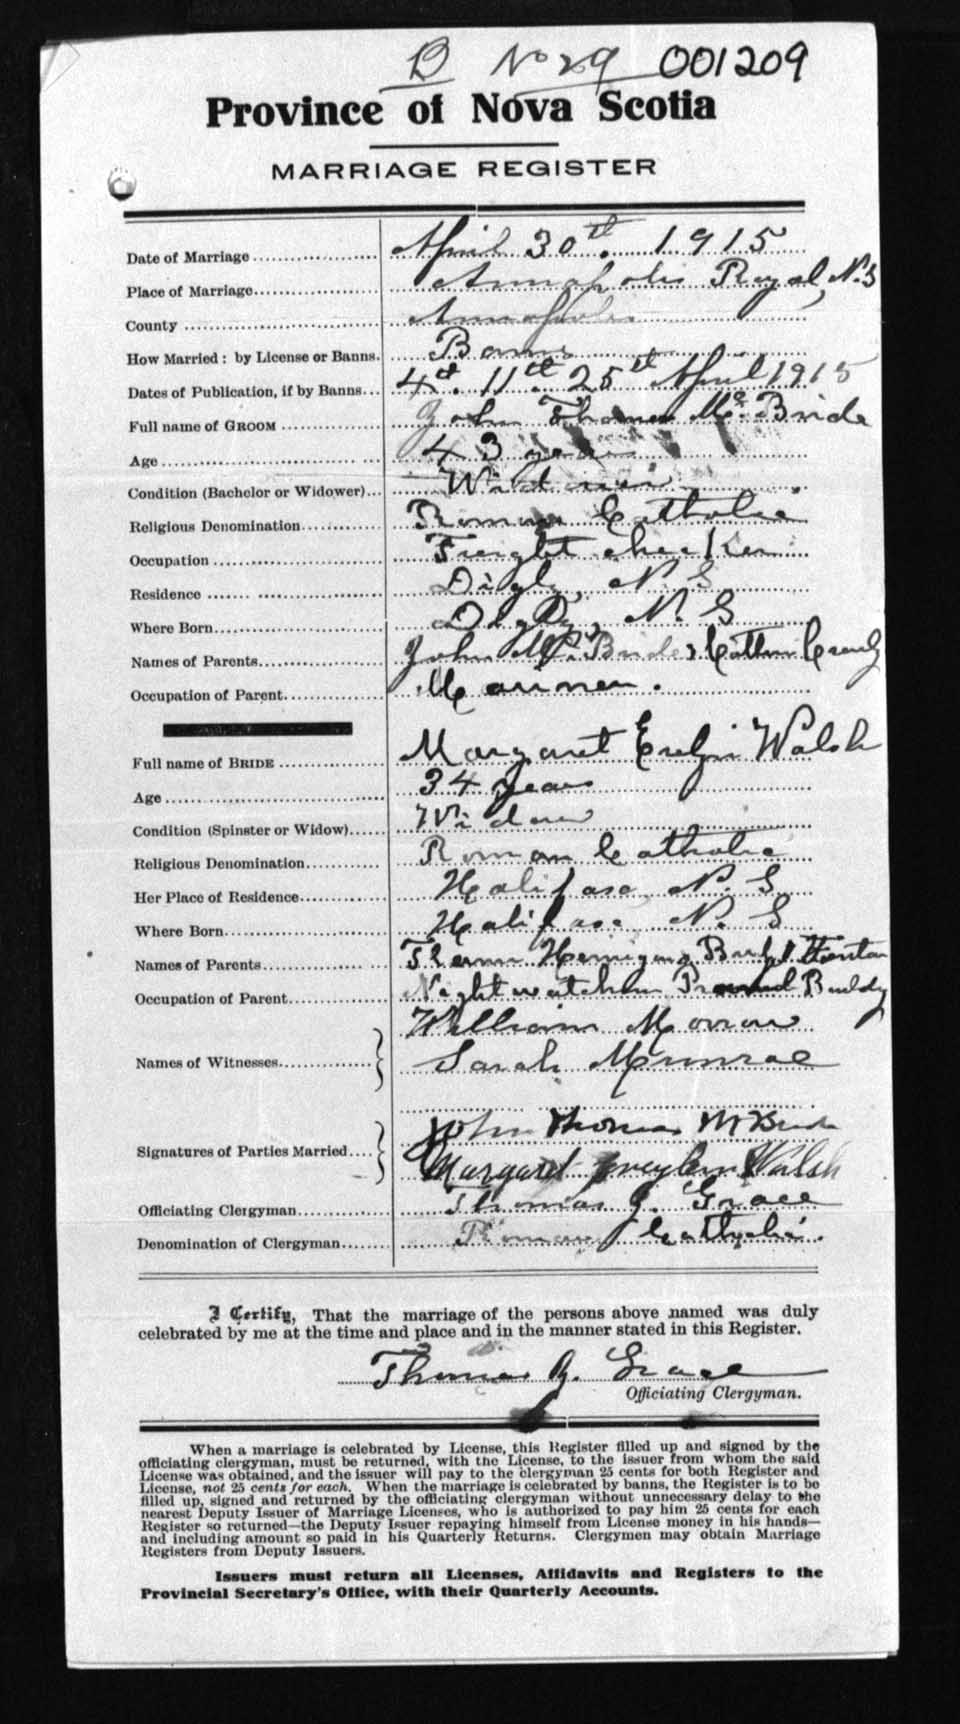 B No 29 001209
Province of Nova Scotia
MARRIAGE REGISTER
Date of Marriage April 30th. 1915
Place of Marriage Annapolis Royal, N.S
County Annapolis
How Married: by License or Banns. Banns
Dates of Publication, if by Banns 4th. 11th. 25th April 1915
Full name of GROOM John Thomas McBride
Age 43 years
Condition (Bachelor or Widower) Widower
Religious Denomination Roman Catholic
Occupation Freight checker
Residence Digby, N. S
Where Born Digby, N. S
Names of Parents John McBride
Occupation of Parent Mariner.
Full name of BRIDE Margaret Evelyn Walsh
Age 34 years
Condition (Spinster or Widow) Widow
Religious Denomination Roman Catholic
Her Place of Residence Halifax, N. S.
Where Born Halifax, N. S
Names of Parents
Occupation of Parent Night watchman
Names of Witnesses William Morrow
Sarah Munroe
Signatures of Parties Married John Thomas McBride
Margaret Walsh
Officiating Clergyman Thomas J. Grace
Denomination of Clergyman Roman Catholic.
I Certify, That the marriage of the persons above named was duly
celebrated by me at the time and place and in the manner stated in this Register.
Thomas J. Grace
Officiating Clergyman.
When a marriage is celebrated by License, this Register filled up and signed by the
officiating clergyman, must be returned, with the License, to the issuer from whom the said
License was obtained, and the issuer will pay to the clergyman 25 cents for both Register and
License, not 25 cents for each. When the marriage is celebrated by banns, the Register is to be
filled up, signed and returned by the officiating clergyman without unnecessary delay to the
nearest Deputy Issuer of Marriage Licenses, who is authorized to pay him 25 cents for each
Register so returned—the Deputy Issuer repaying himself from License money in his hands—
and including amount so paid in his Quarterly Returns. Clergymen may obtain Marriage
Registers from Deputy Issuers.
Issuers must return all Licenses, Affidavits and Registers to the
Provincial Secretary's Office, with their Quarterly Accounts.